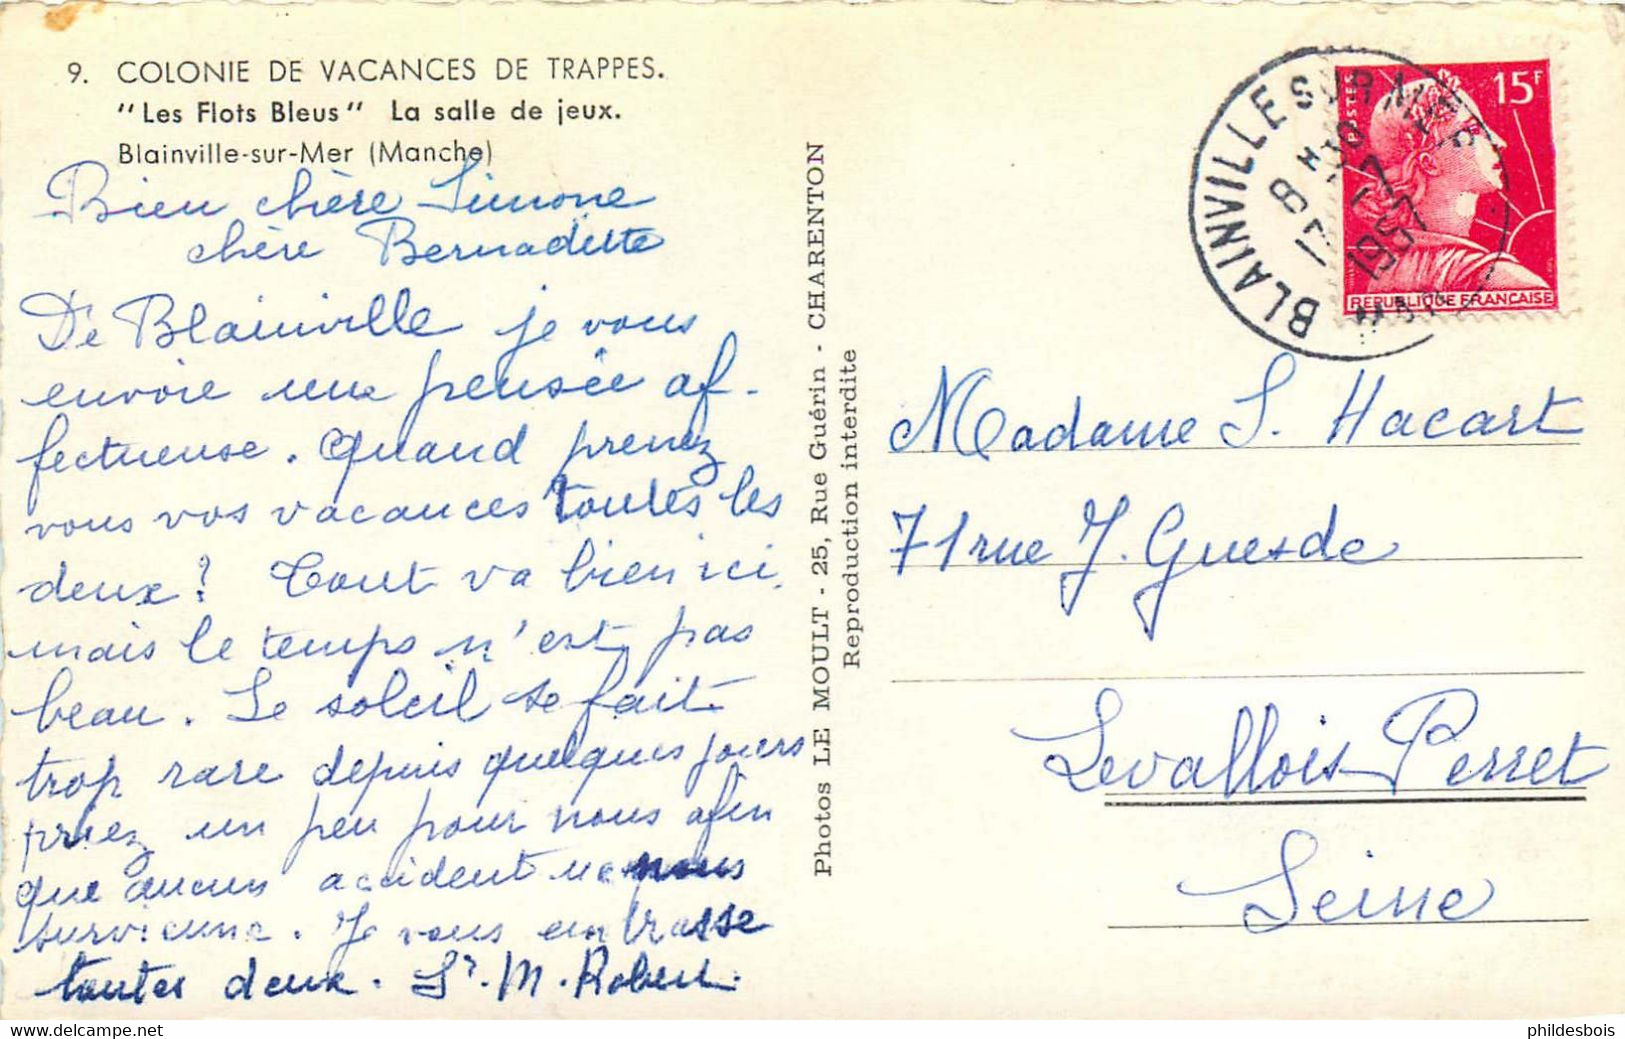 9. COLONIE DE VACANCES DE TRAPPES.
"Les Flots Bleus" La salle de jeux.
Blainville-sur-Mer (Manche)
Bien chère Simone
chère Bernadette
De Blainville je vous
envoie une pensée af-
fectueuse. Quand prenez
vous vos vacances toutes les
deux? Tout va bien ici,
mais le temps n'est pas
beau. Le soleil se fait
trop rare depuis quelques jours
priez un peu pour nous afin
que aucun accident ne nous
survienne. Je vous embrasse
toutes deux. Sr. M. Robert.
Photos LE MOULT - 25, Rue Guérin - CHARENTON
Reproduction interdite
BLAINVILLE SUR MER
1957
POSTES
15F
REPUBLIQUE FRANCAISE
Madame S. Hacart
71 rue J. Guesde
Levallois Perret
Seine
phildesbois